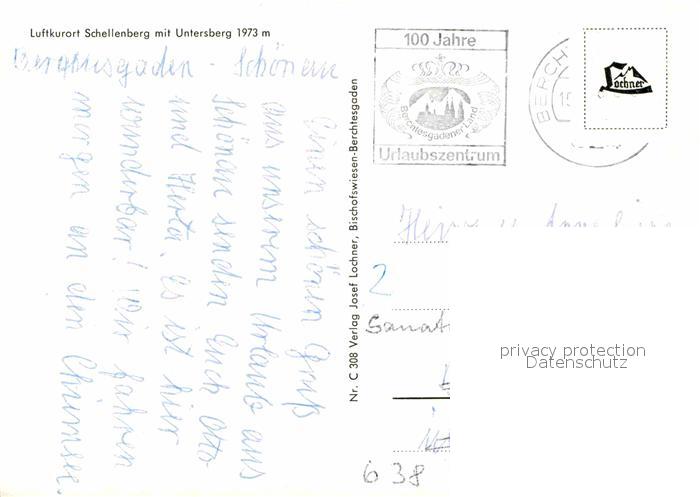 Luftkurort Schellenberg mit Untersberg 1973 m
Berchtesgaden - Schönau
Einen schönen Gruß
aus unserem Urlaub aus
Schönau senden Euch Otto
und Herta, es ist hier
wunderbar! Wir fahren
morgen an den Chiemsee.
Nr. C 308 Verlag Josef Lochner, Bischofswiesen-Berchtesgaden
100 Jahre
Berchtesgadener Land
Urlaubszentrum
BERCH
15
Lochner
2
Sanat
privacy protection
Datenschutz
638